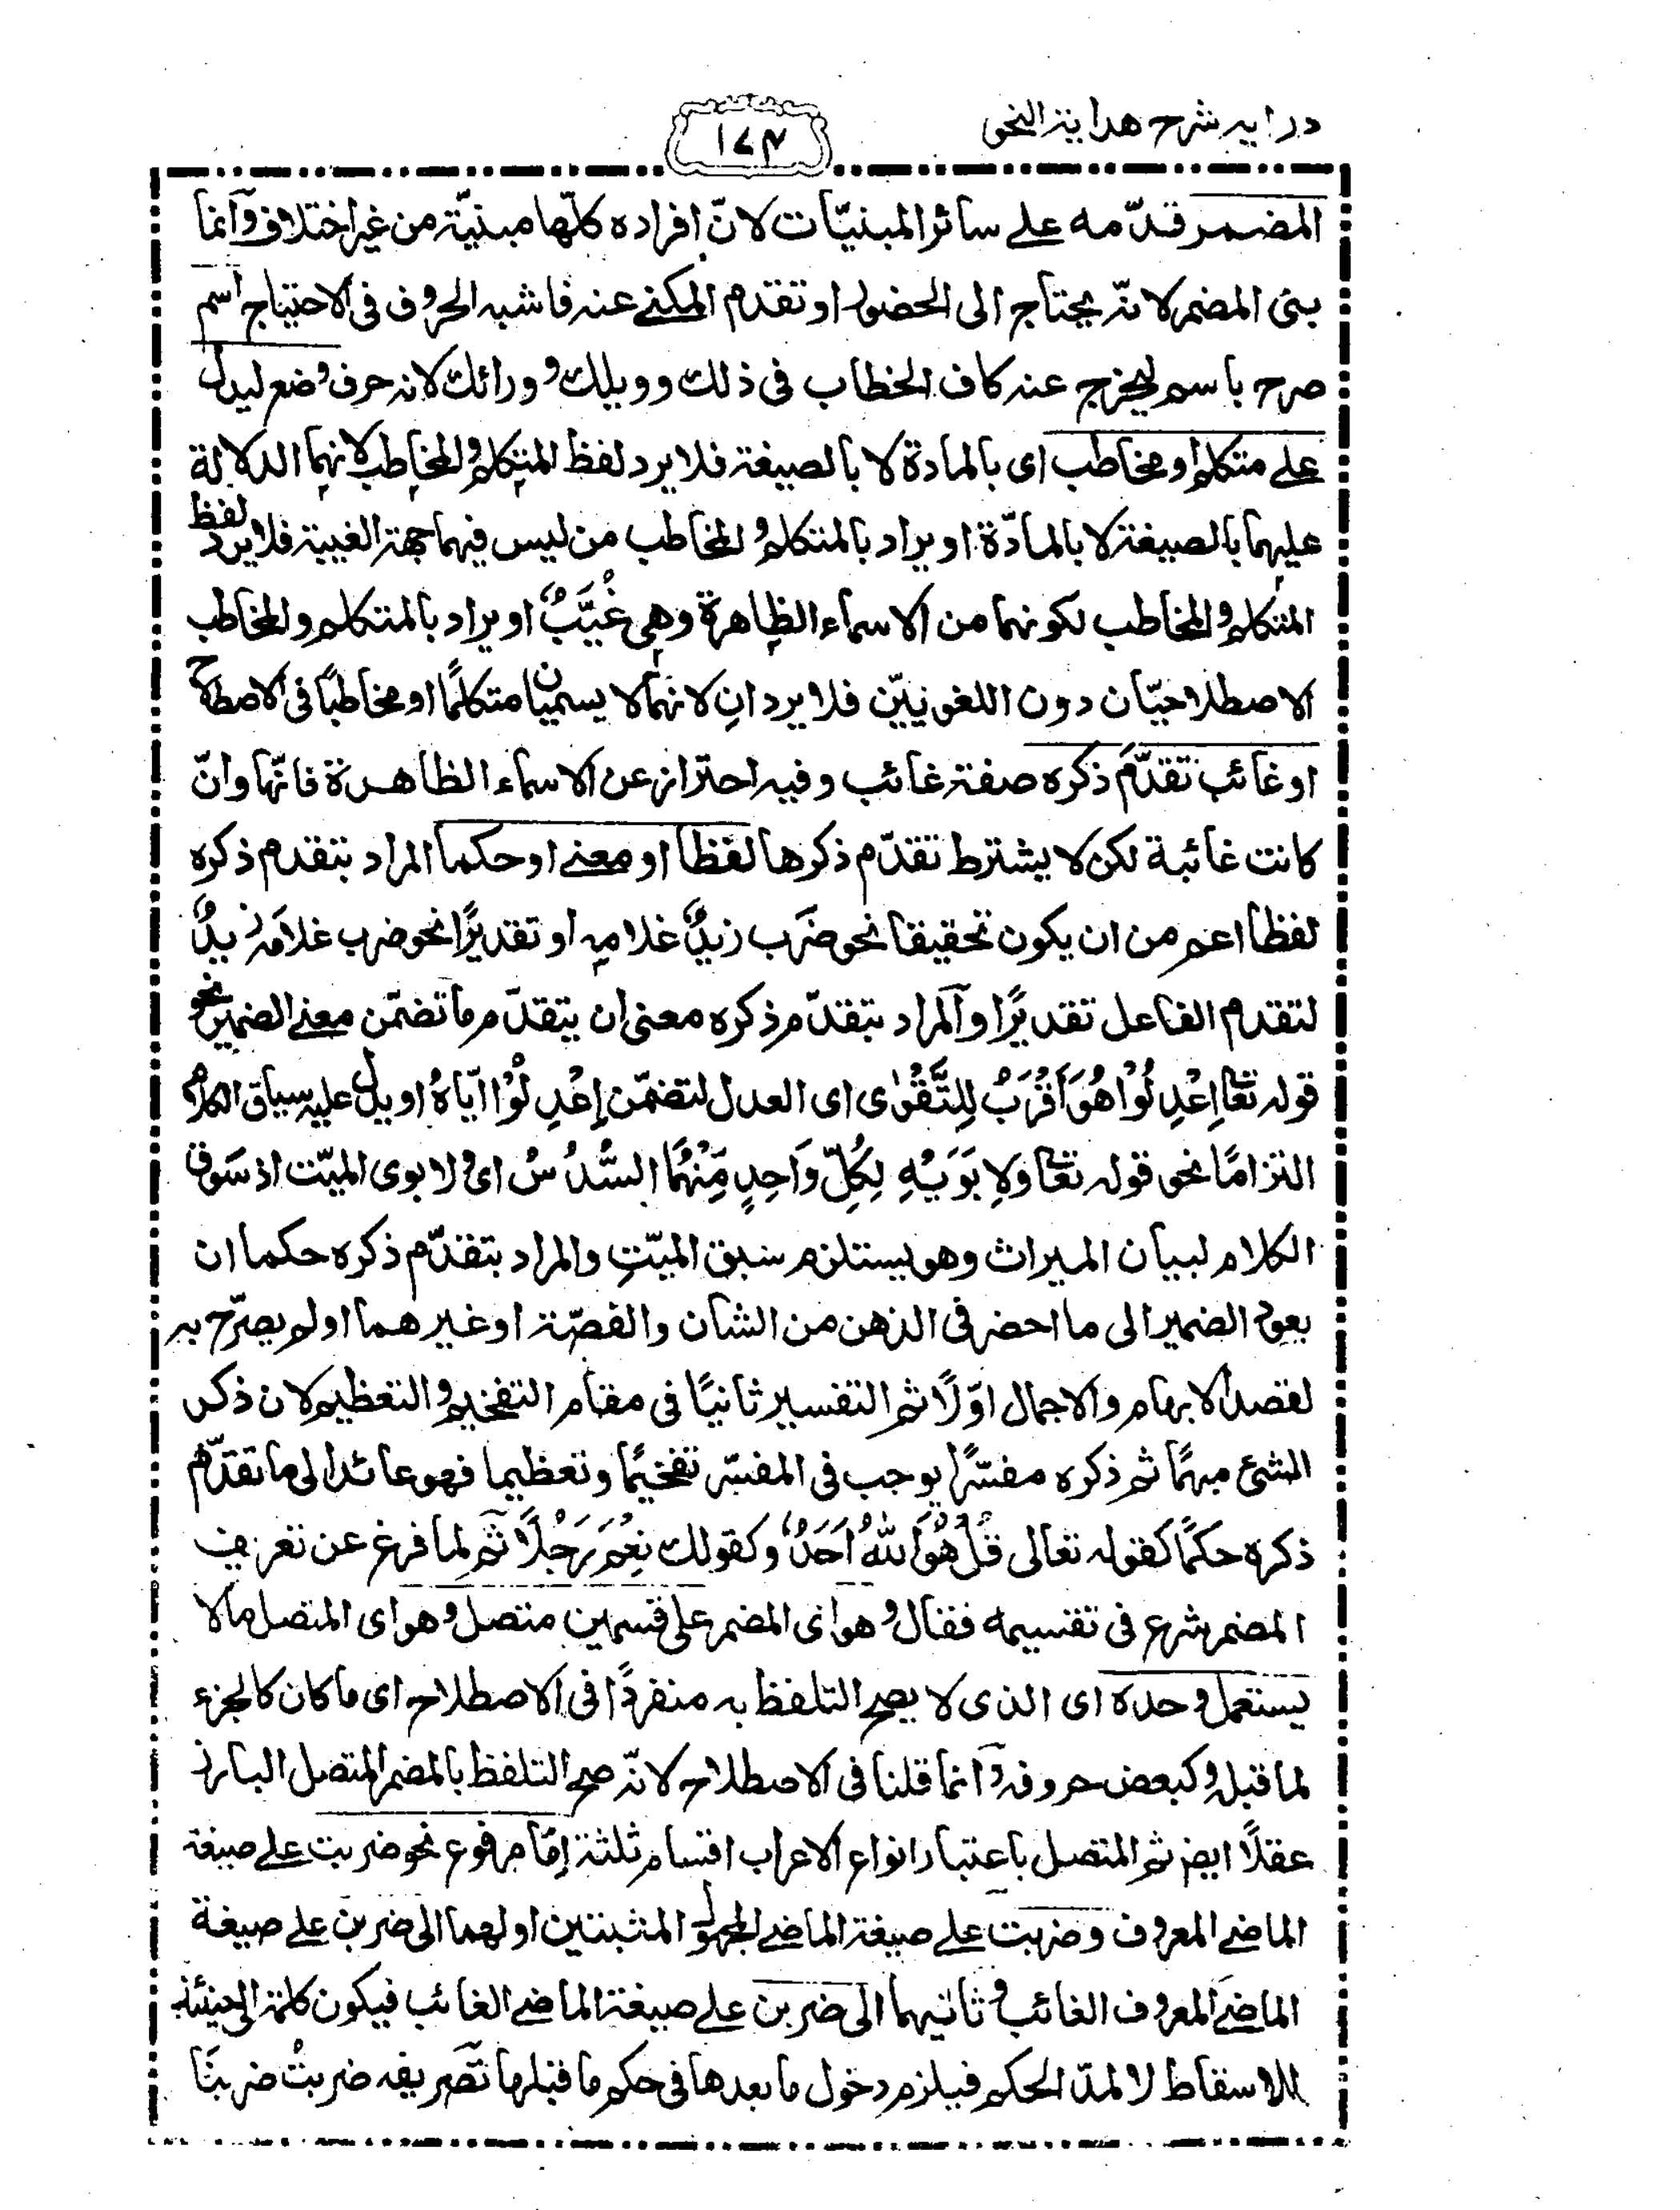 درایہ شرح ھدایۃ النحو
۱۷۴
المضمر قدّمہ علے سائر المبنیّات لانّ افرادہ کلّھا مبنیّۃ من غیر اختلاف وآنما
بنی المضمر لانّہ یحتاج الی الحضور او تقدم المکنے عنہ فاشبہ الحروف فی الاحتیاج اسم
صرح باسم لیخرج عنہ کاف الخطاب فی ذلک وویلک و ورائک لانہ حرف وضع لیدل
علے متکلم او مخاطب ای بالمادۃ لا بالصیغۃ فلا یرد لفظ المتکلم والمخاطب لانھما الدلالة
علیھما بالصیغۃ لا بالمادّۃ او یراد بالمتکلم والمخاطب من لیس فیھما جھۃ الغیبۃ فلا یرد لفظ
المتکلم والمخاطب لکونھما من الاسماء الظاھرة وھی غُیَّبٌ او یراد بالمتکلم والمخاطب
الاصطلاحیّان دون اللغویّین فلا یردانِ لانھما لا یسمیان متکلمًا او مخاطبًا فی الاصطلاح
او غائب تقدّم ذکرہ صفۃ غائب وفیہ احتراز عن الاسماء الظاھرۃ فانّھا وانّ
کانت غائبة لکن لا یشترط تقدّم ذکرھا لفظا او معنے او حکما المراد بتقدم ذکرہ
لفظا اعم من ان یکون تحقیقا نحو ضَرب زیدٌ غلامہ او تقدیرًا نحو ضرب غلامَہ زیدٌ
لتقدم الفاعل تقدیرًا وآلمراد بتقدّم ذکرہ معنی ان یتقدّم ما تضمّن معنے الضمیر نحو
قولہ تعا اِعْدِلُوْا ھُوَ اَقْرَبُ لِلتَّقْوٰی ای العدل لتضمّن اِعْدِلُوْا ایّاہُ او یدل علیہ سیاق الکلام
التزامًا نحو قولہ تعا وَلِاَبَوَیْہِ لِکُلِّ وَاحِدٍ مِّنْھُمَا السُّدُسُ ای ولابوی المیّت اذ سَوق
الکلام لبیان المیراث وھو یستلزم سبق المیّتِ والمراد بتقدّم ذکرہ حکما ان
یعود الضمیر الی ما احضر فی الذھن من الشان والقصّۃ او غیرھما او لم یصرّح بہ
لقصد الابھام والاجمال اوّلًا ثم التفسیر ثانیًا فی مقام التفخیم والتعظیم لان ذکر
الشئ مبھمًا ثم ذکرہ مفسّرًا یوجب فی المفسّر تفخیمًا وتعظیما فھو عائد الی ما تقدّم
ذکرہ حکمًا کقولہ تعالی قُلْ ھُوَ اللهُ اَحَدٌ وکقولک نِعْمَ رَجُلًا ثم لما فرغ عن تعریف
المضمر شرع فی تقسیمہ فقال وھو ای المضمر علی قسمین متصل وھو ای المتصل مالا
یستعمل وحدہ ای الذی لا یصح التلفظ بہ منفردًا فی الاصطلاح ای ما کان کالجزء
لما قبلہ وکبعض حروفہ وآنما قلنا فی الاصطلاح لانّہ صح التلفظ بالمضمر المتصل البارز
عقلًا ایضا ثم المتصل باعتبار انواع الاعراب اقسام ثلثۃ اِمّا مرفوع نحو ضربت علے صیغۃ
الماضے المعروف وضربت علے صیغۃ الماضے المجھول المثبتتین اولھما الی ضربن علے صیغة
الماضے المعروف الغائب وثانیھما الی ضربن علے صیغۃ الماضے الغائب فیکون کلمۃ الی حینئذ
للاسقاط لا لمدّ الحکم فیلزم دخول ما بعدھا فی حکم ما قبلھا تصریفہ ضربتُ ضربنَا